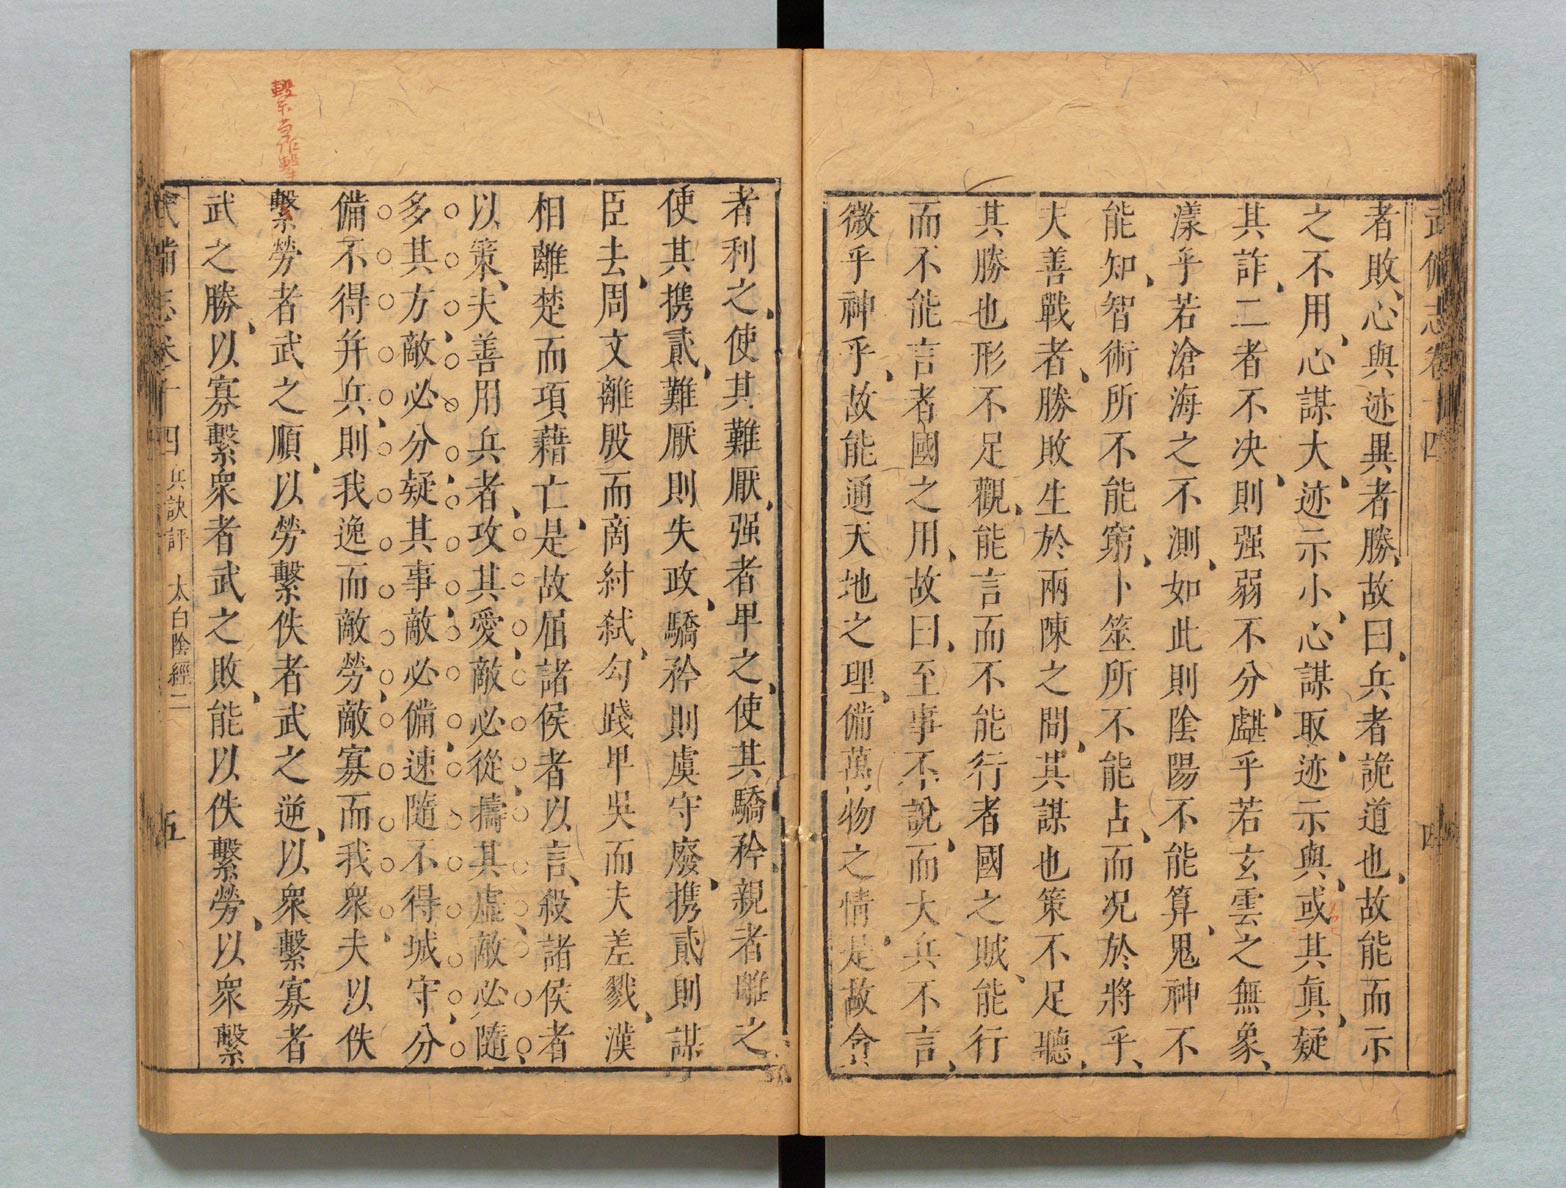 武備志卷十四
四
者敗、心與迹異者勝、故曰、兵者詭道也、故能而示
之不用、心謀大、迹示小、心謀取、迹示與、或其眞、疑
其詐、二者不决、則强弱不分、𤾉乎若玄雲之無象、
漾乎若滄海之不測、如此則陰陽不能算、鬼神不
能知、智術所不能窮、卜筮所不能占、而况於將乎、
夫善戰者、勝敗生於兩陳之間、其謀也策不足聽、
其勝也形不足觀、能言而不能行者國之賊、能行
而不能言者國之用、故曰、至事不說、而大兵不言、
微乎神乎、故能通天地之理、備萬物之情、是故貪
者利之、使其難厭、强者卑之、使其驕矜、親者離之
使其携貳、難厭則失政、驕矜則虞守廢、携貳則謀
臣去、周文離殷而商紂弑、勾踐卑吳而夫差戮、漢
相離楚而項藉亡、是故屈諸侯者以言、殺諸侯者
以策、夫善用兵者、攻其愛、敵必從、擣其虛、敵必隨、
多其方、敵必分、疑其事、敵必備、速隨不得城守、分
備不得并兵、則我逸而敵勞、敵寡而我衆、夫以佚
繫勞者武之順、以勞繫佚者武之逆、以衆繫寡者
武之勝、以寡繫衆者武之敗、能以佚繫勞、以衆繫
武備志卷十四 兵訣評 太白陰經二 五
繫當作擊